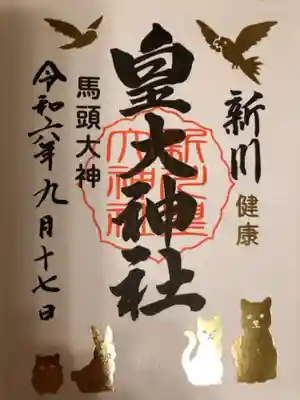 新川
健康
皇大神社
馬頭大神
令和六年九月十七日
新川皇
大神社